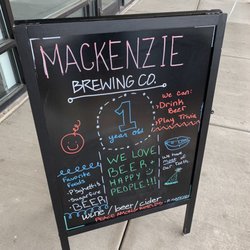 MACKENZIE
BREWING CO.
we can:
Drink
Beer
Play Trivia
1
year old
Favorite
Foods
Spaghettis
BEER
WE LOVE
BEER +
HAPPY
PEOPLE!!!
we
MADE
wine / beer / cider